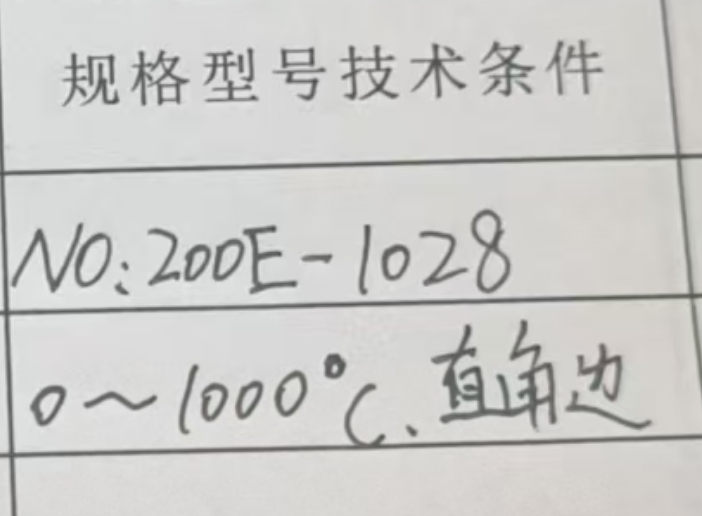 规格型号技术条件
NO:200E-1028
0~1000°C、直角边